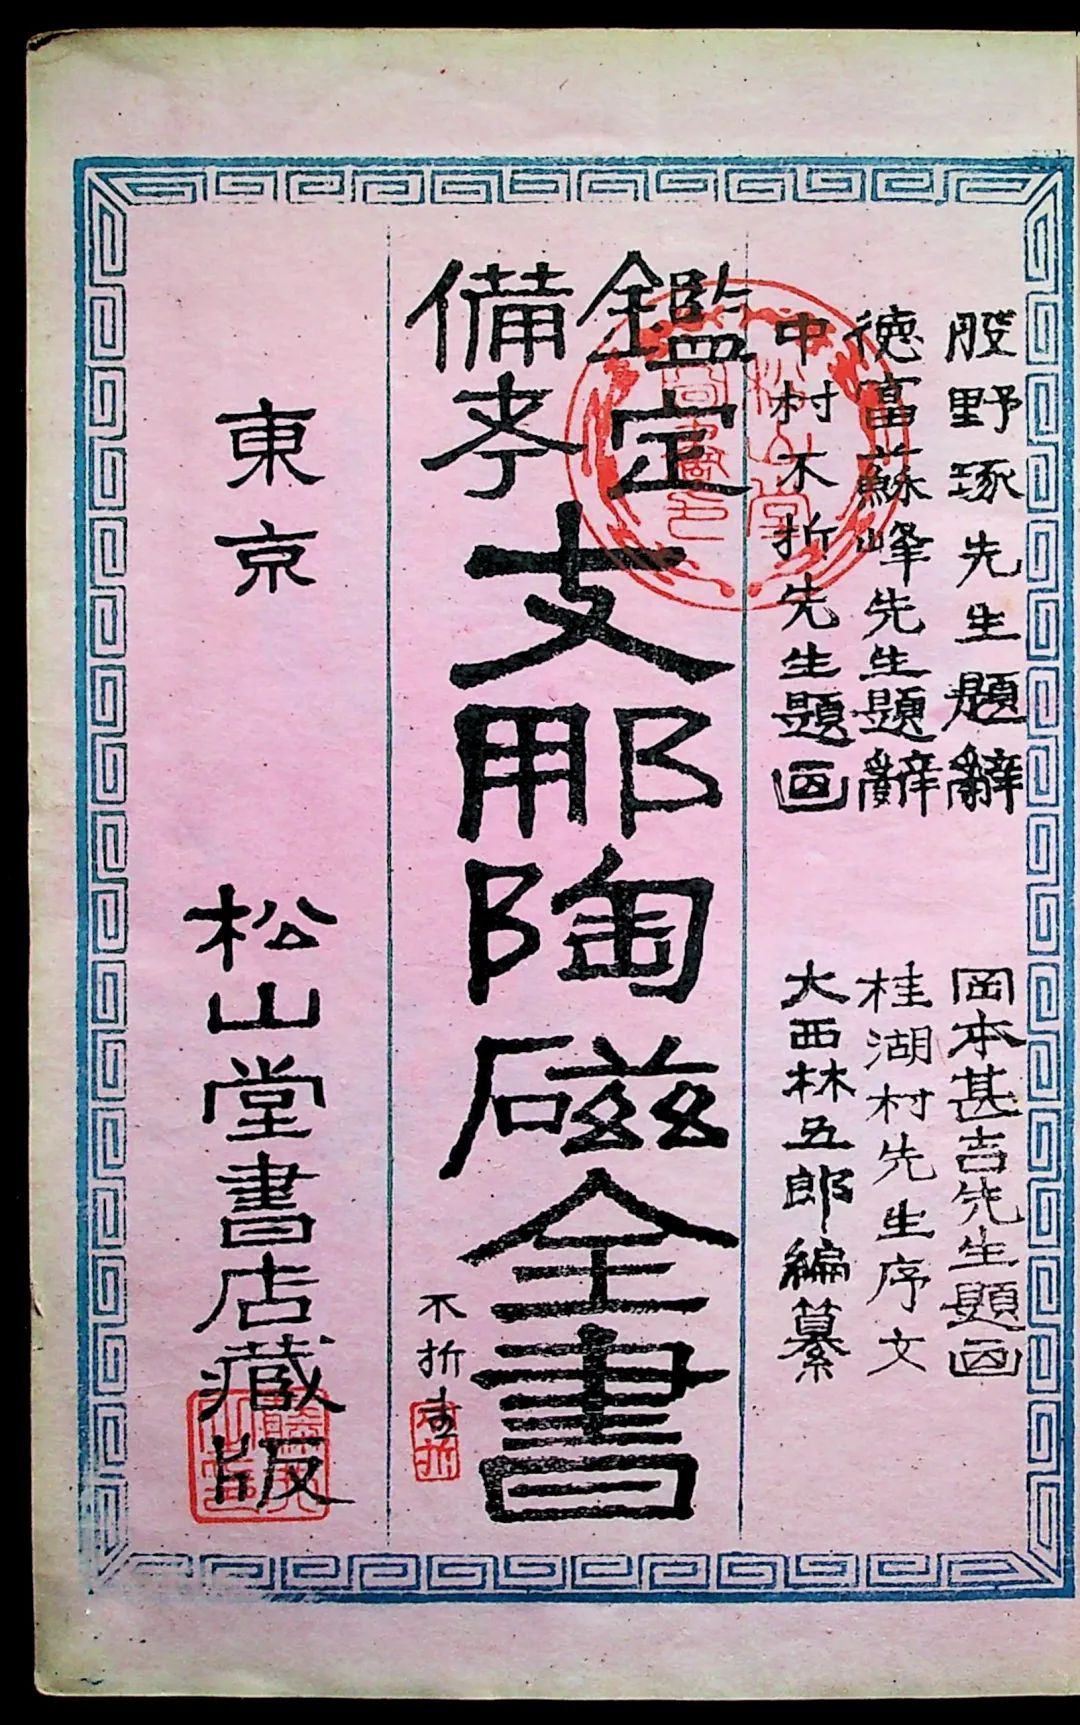 股野琢先生題辭
徳富蘇峰先生題辭
中村不折先生題画
岡本甚吉先生題画
桂湖村先生序文
大西林五郎編纂
鑑定
備考
支那陶磁全書
不折書
東京
松山堂書店藏版